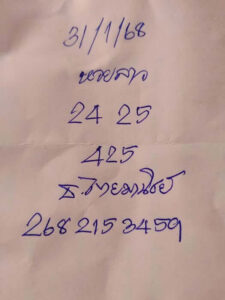 31/1/68
หวยลาว
24 25
425
ธ.ไทยพาณิชย์
268 215 3459